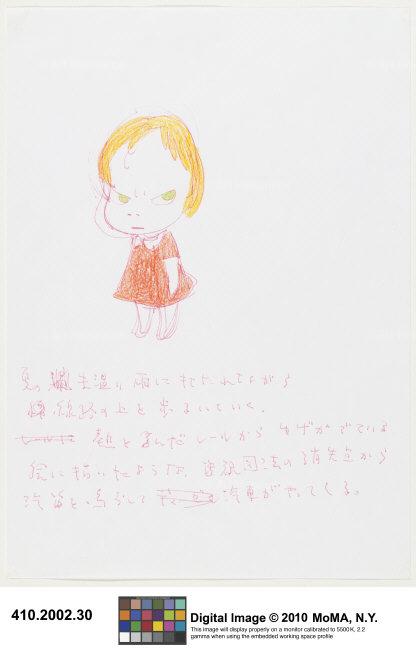 夏の 生温い雨に
線路の上を歩いていく。
熱を レールから ゆげがでている
絵に描いたような、 図法の消失点から
汽笛を鳴らして 汽車がやってくる。
410.2002.30
Digital Image © 2010 MoMA, N.Y.
This image will display properly on a monitor calibrated to 5500K, 2.2
gamma when using the embedded working space profile